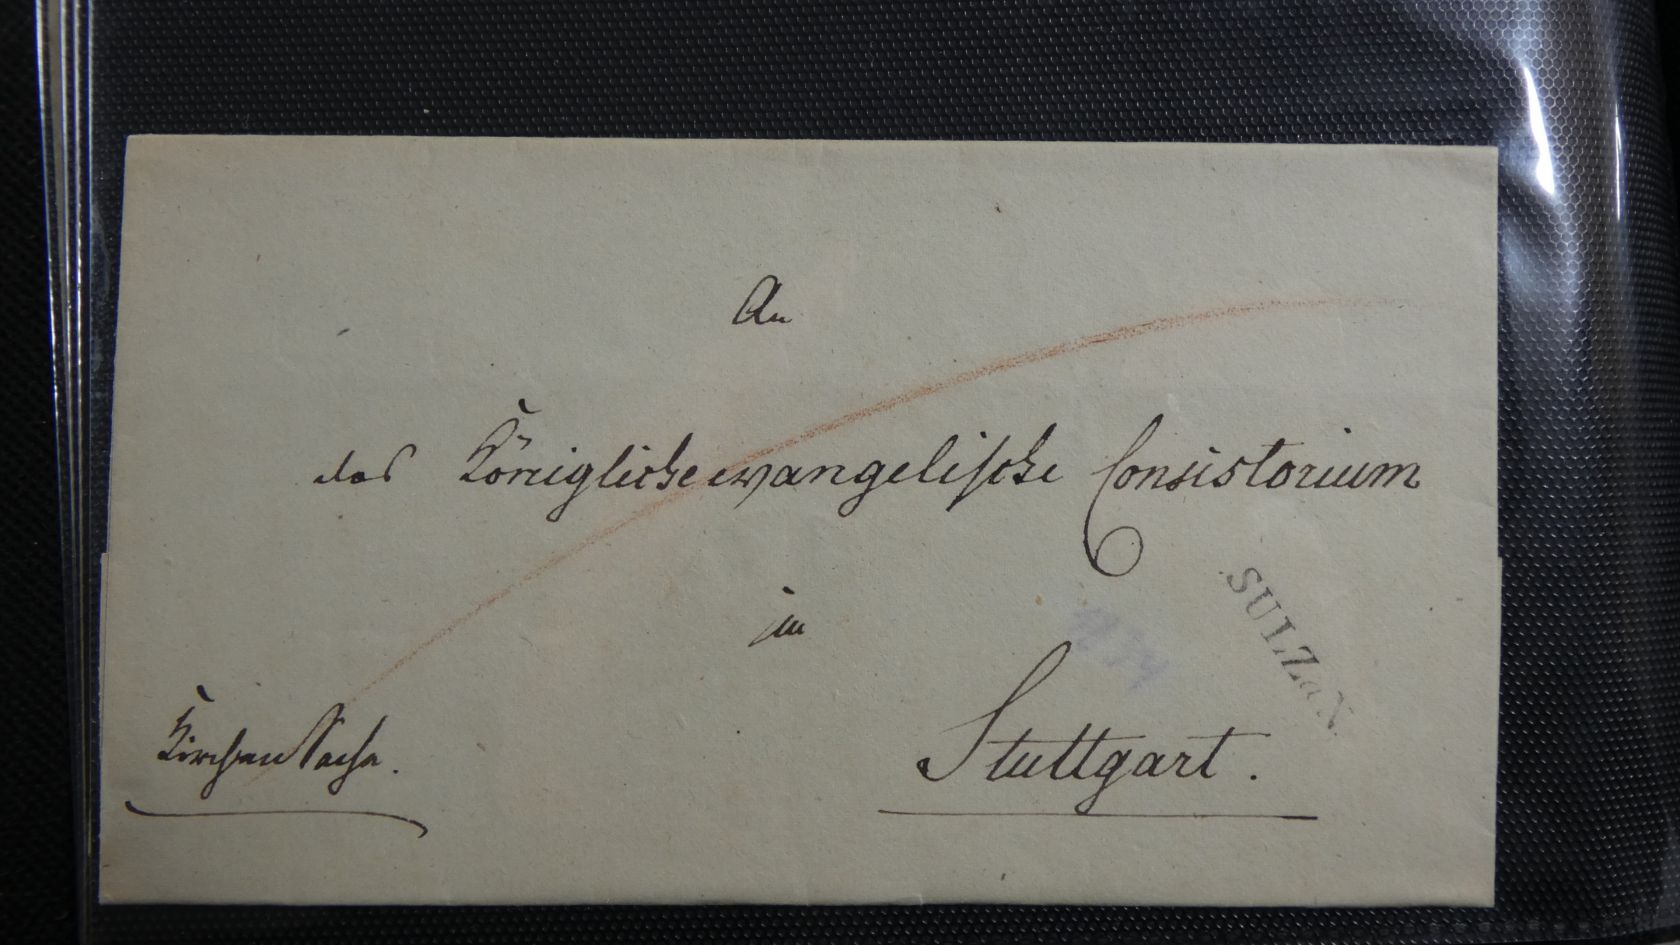 An
das Königliche evangelische Consistorium
in
SULZ a N.
Stuttgart.
Kirchen Sache.